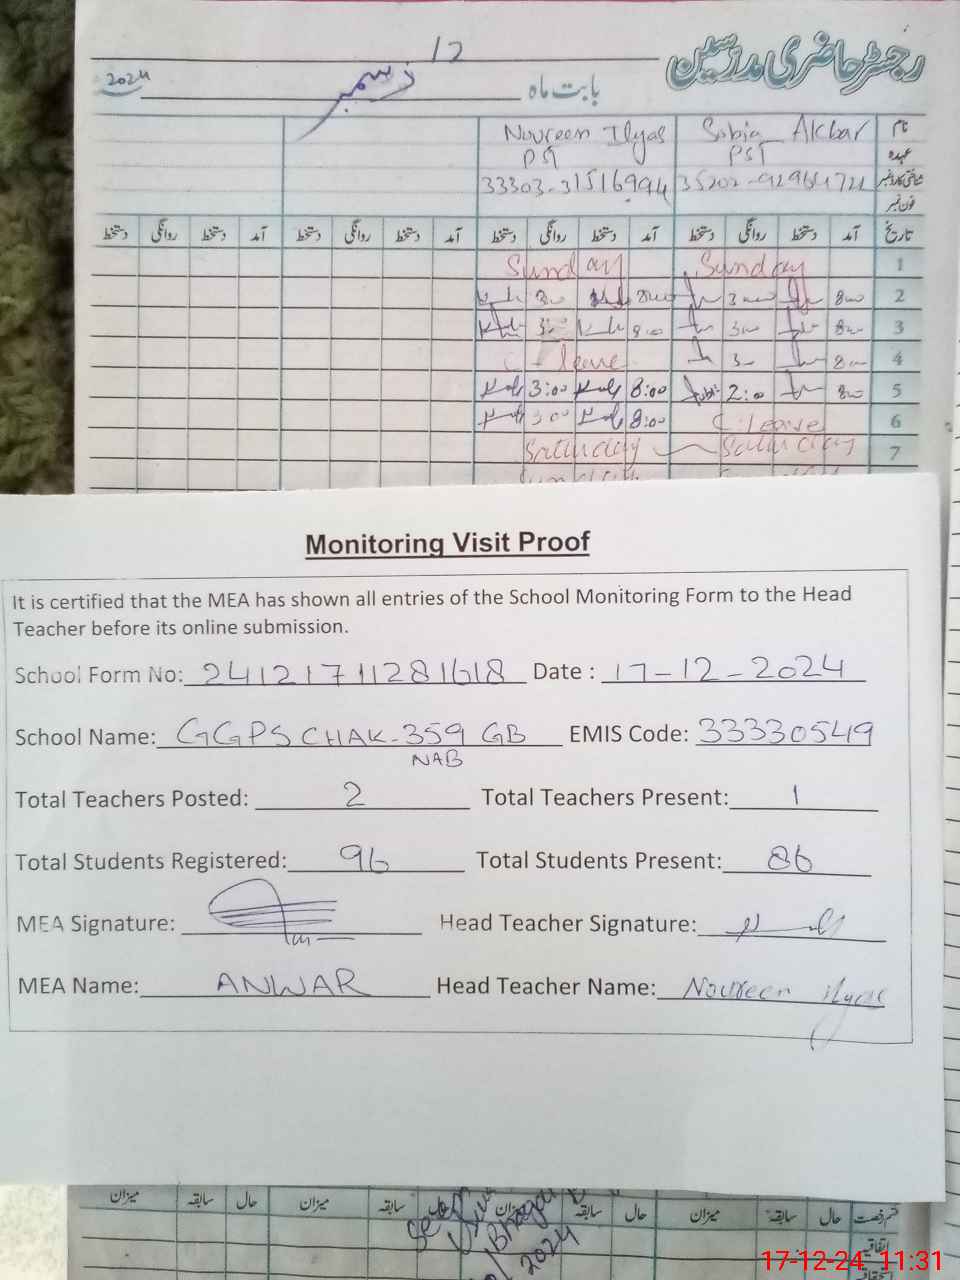 رجسٹر حاضری مدرسین
12
2024 دسمبر بابت ماہ
نام Sobia Akbar Noureen Ilyas
عہدہ PST PST
شناختی کارڈ نمبر
فون نمبر
تاریخ آمد دستخط روانگی دستخط آمد دستخط روانگی دستخط آمد دستخط روانگی دستخط آمد دستخط روانگی دستخط
1 Sunday Sunday
2
3
4 leave
5 8:00 2:00 8:00 3:00
6 C.leave 8:00 3:00
7 Saturday Saturday
Monitoring Visit Proof
It is certified that the MEA has shown all entries of the School Monitoring Form to the Head
Teacher before its online submission.
School Form No: 24121711281618 Date : 17-12-2024
School Name: GGPS CHAK-359 GB EMIS Code: 33330549
NAB
Total Teachers Posted: 2 Total Teachers Present: 1
Total Students Registered: 96 Total Students Present: 86
MEA Signature: Head Teacher Signature:
MEA Name: ANWAR Head Teacher Name: Noureen Ilyas
قسم رخصت حال سابقہ میزان حال سابقہ میزان حال سابقہ میزان حال سابقہ میزان
اتفاقیہ
استحقاقیہ
2024
17-12-24 11:31